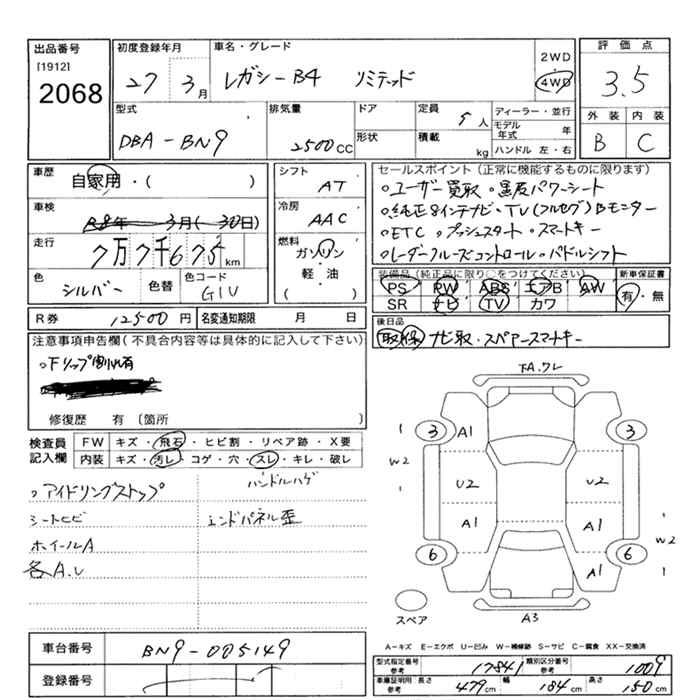 出品番号
[1912]
2068
初度登録年月
27 3月
車名・グレード
レガシーB4 リミテッド
2WD・4WD
評価点
3.5
外装 内装
B C
型式
DBA-BN9
排気量
2500CC
ドア
形状
定員
5人
積載
kg
ディーラー・並行
モデル年式 年
ハンドル 左・右
車歴
自家用・( )
車検
R8年 3月(30日)
走行
7万7千675km
色
シルバー
色替
色コード
G1U
シフト
AT
冷房
AAC
燃料
ガソリン
軽・油
( )
セールスポイント(正常に機能するものに限ります)
○ユーザー買取 ○黒皮パワーシート
○純正8インチナビ・TV(フルセグ)Bモニター
○ETC ○プッシュスタート ○スマートキー
○レーダークルーズコントロール・パドルシフト
装備品(純正品に限り○をつけてください)
PS PW ABS エアB AW
SR ナビ TV カワ
新車保証書
有・無
R券 12500円
名変通知期限 月 日
後日品
取 保 ナビ取・スペアースマートキー
注意事項申告欄(不具合内容等は具体的に記入して下さい)
○Fリップ割れ有
修復歴 有〔箇所 〕
検査員記入欄
FW キズ・飛石・ヒビ割・リペア跡・X要
内装 キズ・汚レ・コゲ・穴・スレ・キレ・破レ
ハンドルハゲ
○アイドリングストップ
シートヒビ エンドパネル歪
ホイールA
各A.U
下A.ワレ
3 A1 3
1
W2
1
U2 U2
A1 A1
1
W2
1
6 6
A1
スペア
A3
A-キズ E-エクボ U-凹み W-補修跡 S-サビ C-腐食 XX-交換済
車台番号
BN9-005149
登録番号
型式指定番号 参考 17841
類別区分番号 参考 1009
車庫証明用 参考
長さ 479cm
幅 184cm
高さ 150cm